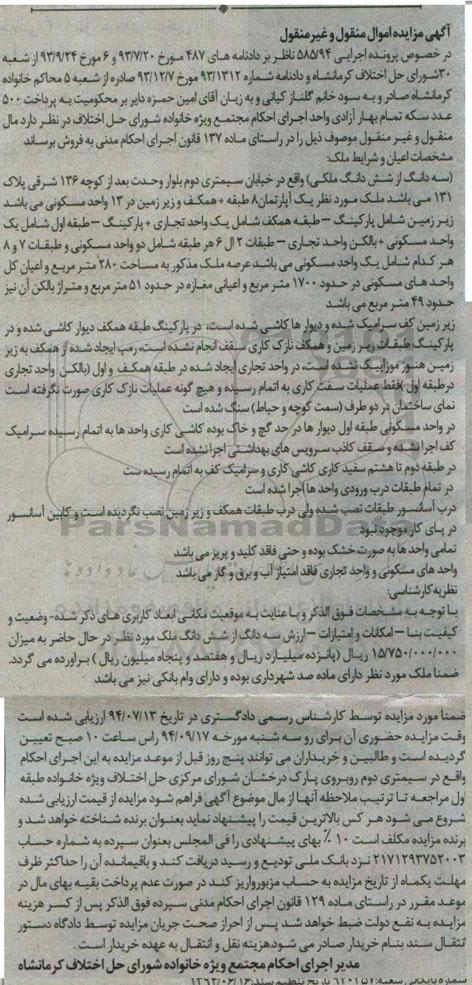 آگهی مزایده اموال منقول و غیرمنقول
در خصوص پرونده اجرایی ۵۸۵/۹۴ ناظر بر دادنامه های ۴۸۷ مورخ ۹۳/۷/۲۰ و ۶ مورخ ۹۳/۹/۲۴ از شعبه
۳۰ شورای حل اختلاف کرمانشاه و دادنامه شماره ۹۳/۱۳۱۲ مورخ ۹۳/۱۲/۷ صادره از شعبه ۵ محاکم خانواده
کرمانشاه صادر و به سود خانم گلناز کیانی و به زیان آقای امین حمزه دایر بر محکومیت به پرداخت ۵۰۰
عدد سکه تمام بهار آزادی واحد اجرای احکام مجتمع ویژه خانواده شورای حل اختلاف در نظر دارد مال
منقول و غیر منقول موصوف ذیل را در راستای ماده ۱۳۷ قانون اجرای احکام مدنی به فروش برساند
مشخصات اعیان و شرایط ملک:
(سه دانگ از شش دانگ ملکی) واقع در خیابان سیمتری دوم بلوار وحدت بعد از کوچه ۱۳۶ شرقی پلاک
۱۳۱ می باشد ملک مورد نظر یک آپارتمان ۸ طبقه + همکف و زیر زمین در ۱۳ واحد مسکونی می باشد
زیر زمین شامل پارکینگ – طبقه همکف شامل یک واحد تجاری + پارکینگ – طبقه اول شامل یک
واحد مسکونی + بالکن واحد تجاری – طبقات ۲ ال ۶ هر طبقه شامل دو واحد مسکونی و طبقات ۷ و ۸
هر کدام شامل یک واحد مسکونی می باشد عرصه ملک مذکور به مساحت ۲۸۰ متر مربع و اعیان کل
واحد های مسکونی در حدود ۱۷۰۰ متر مربع و اعیانی مغازه در حدود ۵۱ متر مربع و متراژ بالکن آن نیز
حدود ۴۹ متر مربع می باشد
زیر زمین کف سرامیک شده و دیوار ها کاشی شده است، در پارکینگ طبقه همکف دیوار کاشی شده و در
پارکینگ طبقات زیر زمین و همکف نازک کاری سقف انجام نشده است، رمپ ایجاد شده از همکف به زیر
زمین هنوز موزاییک نشده است، در واحد تجاری ایجاد شده در طبقه همکف و اول (بالکن واحد تجاری
درطبقه اول) فقط عملیات سفت کاری به اتمام رسیده و هیچ گونه عملیات نازک کاری صورت نگرفته است
نمای ساختمان در دو طرف (سمت کوچه و حیاط) سنگ شده است
در واحد مسکونی طبقه اول دیوار ها در حد گچ و خاک بوده کاشی کاری واحد ها به اتمام رسیده سرامیک
کف اجرا نشده و سقف کاذب سرویس های بهداشتی اجرا نشده است
در طبقه دوم تا هشتم سفید کاری کاشی کاری و سرامیک کف به اتمام رسیده ست
در تمام طبقات درب ورودی واحد ها اجرا شده است
درب آسانسور طبقات نصب شده ولی درب طبقات همکف و زیر زمین نصب نگردیده است و کابین آسانسور
در پای کار موجود نبود
تمامی واحد ها به صورت خشک بوده و حتی فاقد کلید و پریز می باشد
واحد های مسکونی و واحد تجاری فاقد امتیاز آب و برق و گاز می باشد
نظریه کارشناسی:
با توجه به مشخصات فوق الذکر و با عنایت به موقعیت مکانی ابعاد کاربری های ذکر شده – وضعیت و
کیفیت بنا – امکانات و امتیازات – ارزش سه دانگ از شش دانگ ملک مورد نظر در حال حاضر به میزان
۱۵/۷۵۰/۰۰۰/۰۰۰ ریال (پانزده میلیارد ریال و هفتصد و پنجاه میلیون ریال) براورده می گردد.
ضمنا ملک مورد نظر دارای ماده صد شهرداری بوده و دارای وام بانکی نیز می باشد
ضمنا مورد مزایده توسط کارشناس رسمی دادگستری در تاریخ ۹۴/۰۷/۱۳ ارزیابی شده است
وقت مزایده حضوری آن برای رو سه شنبه مورخه ۹۴/۰۹/۱۷ راس ساعت ۱۰ صبح تعیین
گردیده است و طالبین و خریداران می توانند پنج روز قبل از موعد مزایده به این اجرای احکام
واقع در سیمتری دوم روبروی پارک درخشان شورای مرکزی حل اختلاف ویژه خانواده طبقه
اول مراجعه تا ترتیب ملاحظه آنها از مال موضوع آگهی فراهم شود مزایده از قیمت ارزیابی شده
شروع می شود هر کس بالاترین قیمت را پیشنهاد نماید بعنوان برنده شناخته خواهد شد و
برنده مزایده مکلف است ۱۰ ٪ بهای پیشنهادی را فی المجلس بعنوان سپرده به شماره حساب
۲۱۷۱۲۹۳۷۵۲۰۰۳ نزد بانک ملی تودیع و رسید دریافت کند و باقیمانده آن را حداکثر ظرف
مهلت یکماه از تاریخ مزایده به حساب مزبورواریز کند در صورت عدم پرداخت بقیه بهای مال در
موعد مقرر در راستای ماده ۱۲۹ قانون اجرای احکام مدنی سپرده فوق الذکر پس از کسر هزینه
مزایده به نفع دولت ضبط خواهد شد پس از احراز صحت جریان مزایده توسط دادگاه دستور
انتقال سند بنام خریدار صادر می شودهزینه نقل و انتقال به عهده خریدار است.
مدیر اجرای احکام مجتمع ویژه خانواده شورای حل اختلاف کرمانشاه
ParsNamadData